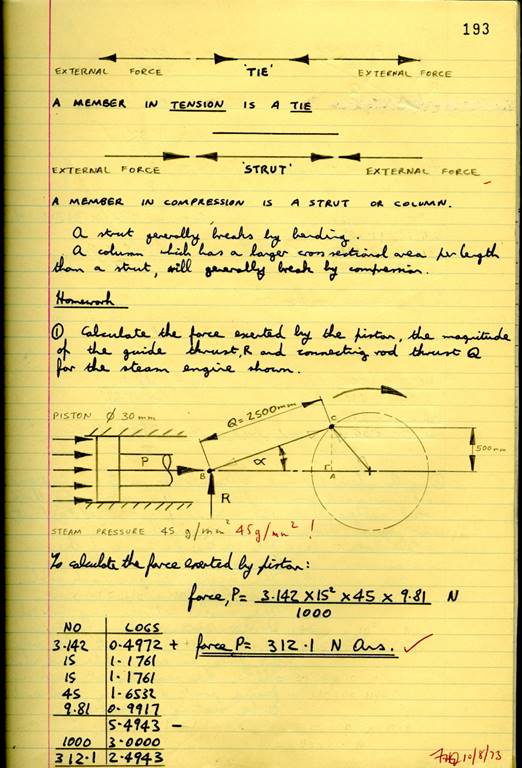 193
'TIE'
EXTERNAL FORCE EXTERNAL FORCE
A MEMBER IN TENSION IS A TIE
EXTERNAL FORCE 'STRUT' EXTERNAL FORCE
A MEMBER IN COMPRESSION IS A STRUT OR COLUMN.
A strut generally breaks by bending.
A column which has a larger cross sectional area per length
than a strut, will generally break by compression.
Homework
① Calculate the force exerted by the piston, the magnitude
of the guide thrust, R and connecting rod thrust Q
for the steam engine shown.
PISTON Ø 30mm
Q = 2500mm
C
500mm
P
B
α
A
R
STEAM PRESSURE 45 g/mm² 45g/mm² !
To calculate the force exerted by piston:
force, P = 3.142 X 15² X 45 X 9.81 N
1000
NO LOGS
3.142 0.4972 + force P = 312.1 N Ans. ✓
15 1.1761
15 1.1761
45 1.6532
9.81 0.9917
5.4943 -
1000 3.0000
312.1 2.4943
10/8/73